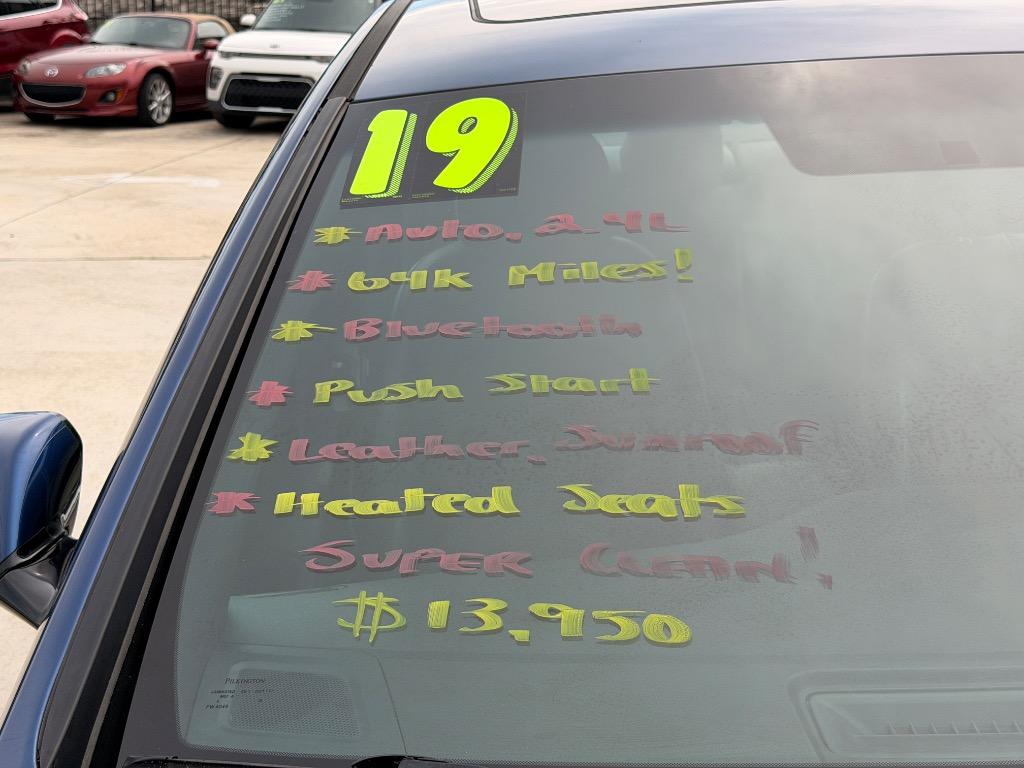 19
* Auto, 2.4L
* 64k Miles!
* Bluetooth
* Push Start
* Leather, Sunroof
* Heated Seats
SUPER CLEAN!
$ 13,950
PILKINGTON